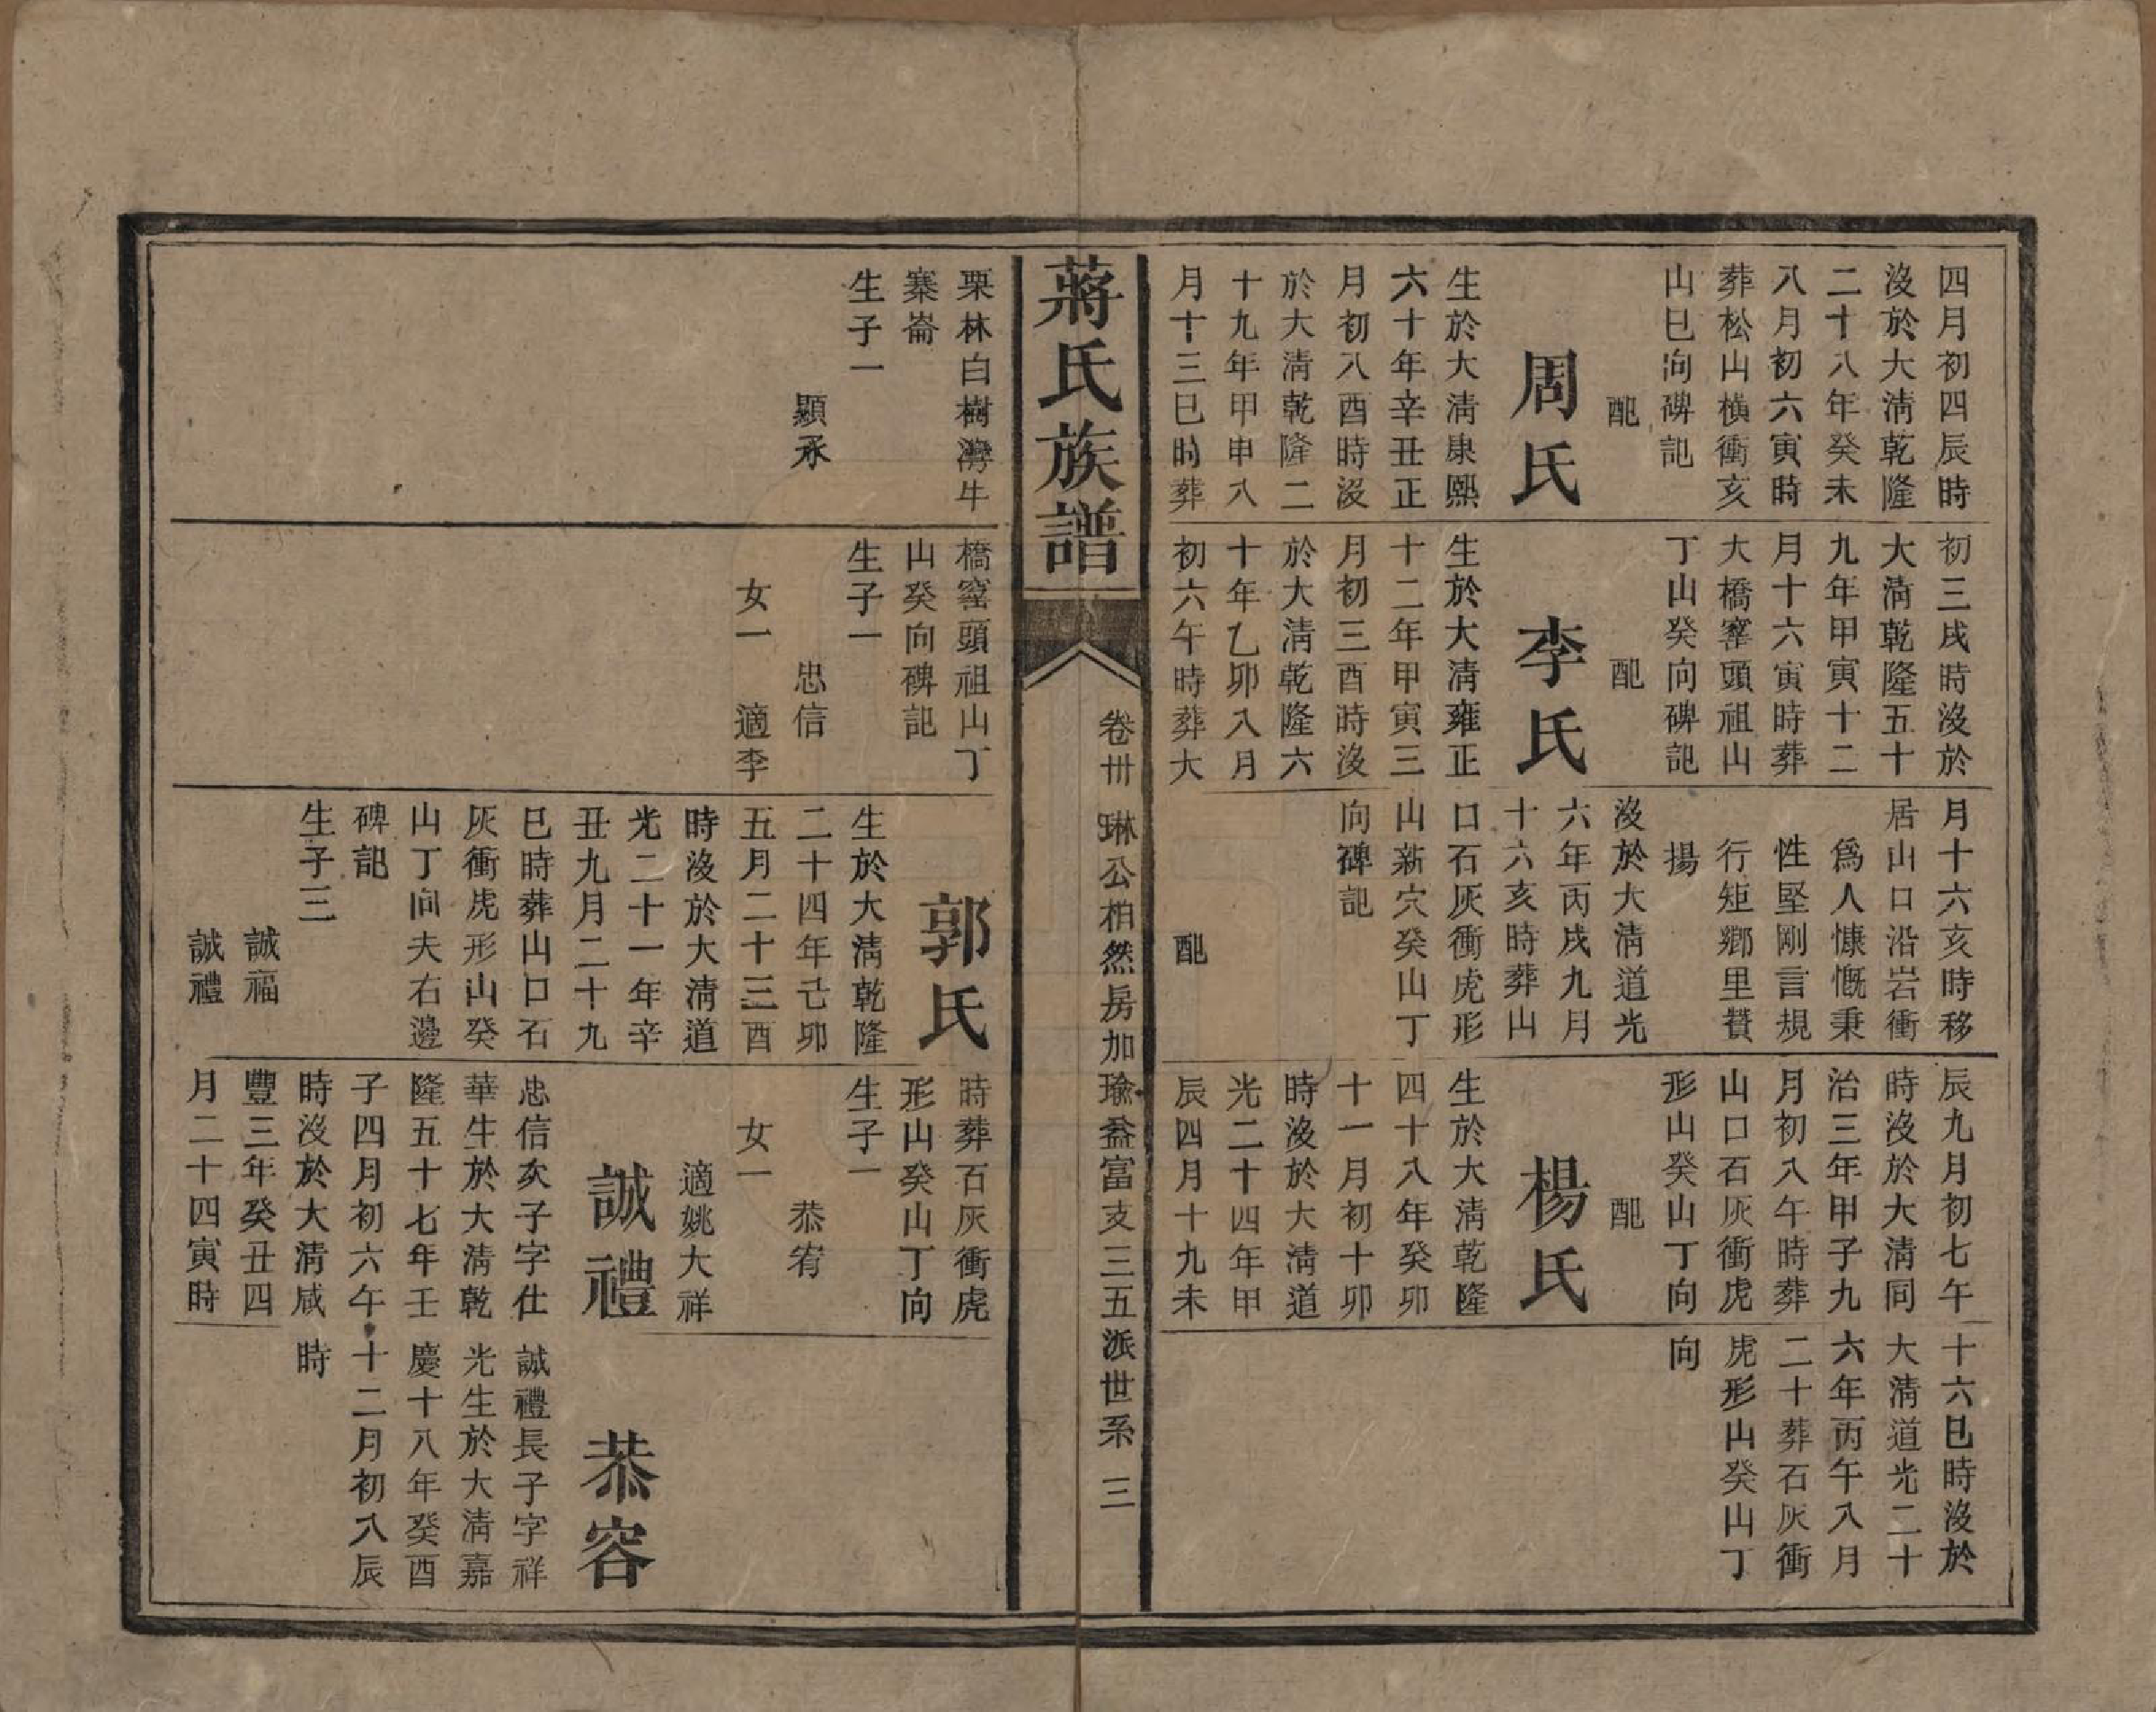 四月初四辰時
沒於大清乾隆
二十八年癸未
八月初六寅時
葬松山橫衝亥
山巳向碑記
配
周氏
生於大清康熙
六十年辛丑正
月初八酉時沒
於大清乾隆二
十九年甲申八
月十三巳時葬
初三戌時沒於
大清乾隆五十
九年甲寅十二
月十六寅時葬
大橋窰頭祖山
丁山癸向碑記
配
李氏
生於大清雍正
十二年甲寅三
月初三酉時沒
於大清乾隆六
十年乙卯八月
初六午時葬大
月十六亥時移
居山口沿岩衝
爲人慷慨秉
性堅剛言規
行矩鄉里贊
揚
沒於大清道光
六年丙戌九月
十六亥時葬山
口石灰衝虎形
山新穴癸山丁
向碑記
配
辰九月初七午
時沒於大清同
治三年甲子九
月初八午時葬
山口石灰衝虎
形山癸山丁向
配
楊氏
生於大清乾隆
四十八年癸卯
十一月初十卯
時沒於大清道
光二十四年甲
辰四月十九未
十六巳時沒於
大清道光二十
六年丙午八月
二十葬石灰衝
虎形山癸山丁
向
蔣氏族譜
卷卅 琳公柏然房加瑜益富支三五派世系 三
栗林白樹灣牛
寨崙
生子一
顯承
橋窰頭祖山丁
山癸向碑記
生子一
忠信
女一 適李
郭氏
生於大淸乾隆
二十四年己卯
五月二十三酉
時沒於大清道
光二十一年辛
丑九月二十九
巳時葬山口石
灰衝虎形山癸
山丁向夫右邊
碑記
生子三
誠福
誠禮
時葬石灰衝虎
形山癸山丁向
生子一
恭宥
女一
適姚大祥
誠禮
忠信次子字仕
華生於大清乾
隆五十七年壬
子四月初六午
時沒於大清咸
豐三年癸丑四
月二十四寅時
恭容
誠禮長子字祥
光生於大清嘉
慶十八年癸酉
十二月初八辰
時